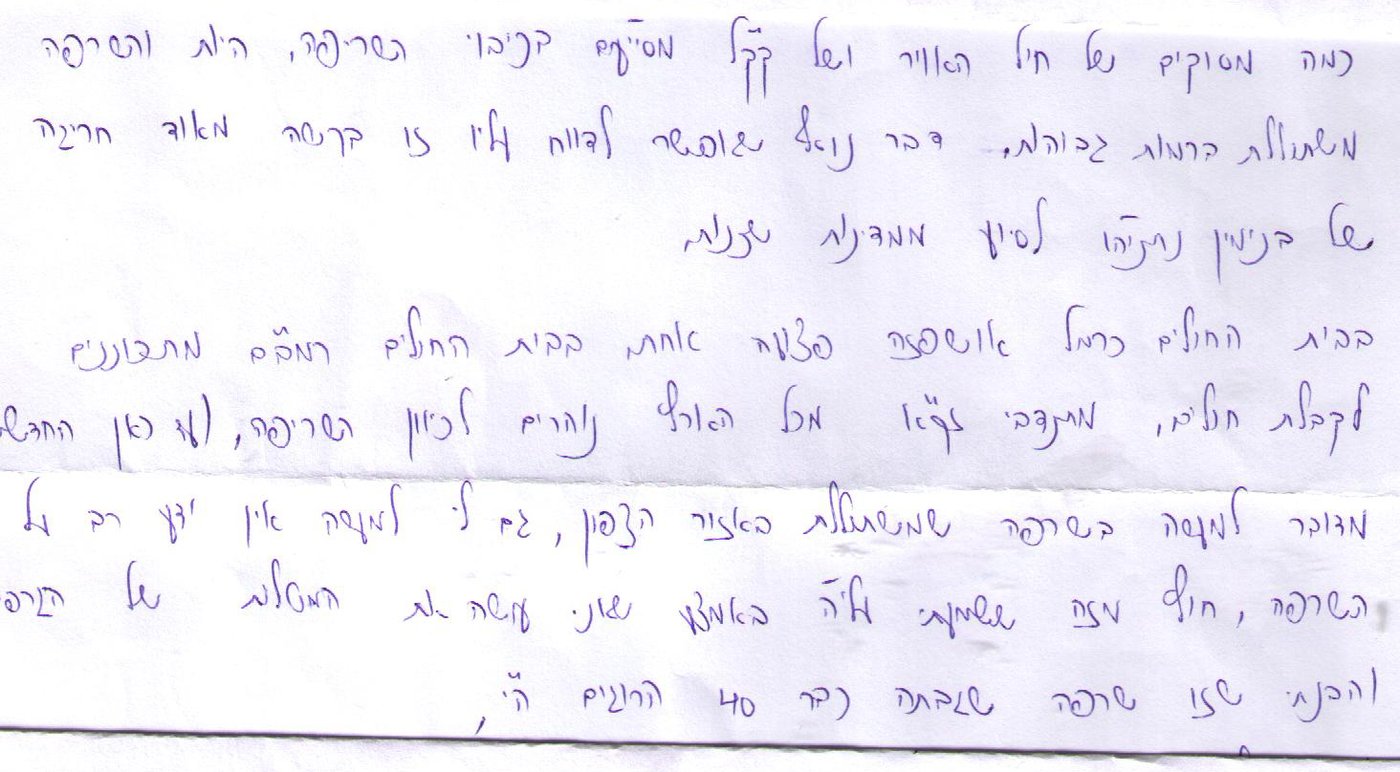 כמה מסוקים של חיל האוויר ושל קק"ל מסייעים בכיבוי השריפה, היות והשרפה
משתוללת ברמות גבוהות. דבר נוסף שאפשר לדווח עליו זו בקשה מאוד חריגה
של בנימין נתניהו לסיוע ממדינות שונות.
בבית החולים כרמל אושפזה פצועה אחת, בבית החולים רמב"ם מתכוננים
לקבלת חולים, מתנדבי זק"א מכל הארץ נוהרים לכיוון השריפה, (עד כאן החדשות
מדובר למעשה בשרפה שמשתוללת באזור הצפון, גם לי למעשה אין ידע רב על
השרפה, חוץ מזה ששמעתי עליה באמצע שאני עושה את המטלות של הגרפו
והבנתי שזו שרפה שגבתה כבר 40 הרוגים הי"